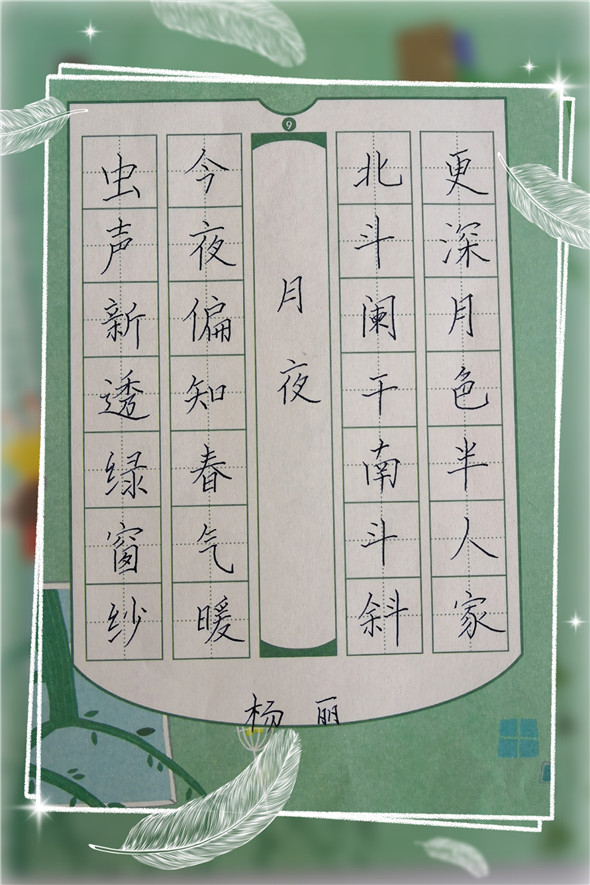 更深月色半人家
北斗阑干南斗斜
月夜
今夜偏知春气暖
虫声新透绿窗纱
杨丽
9